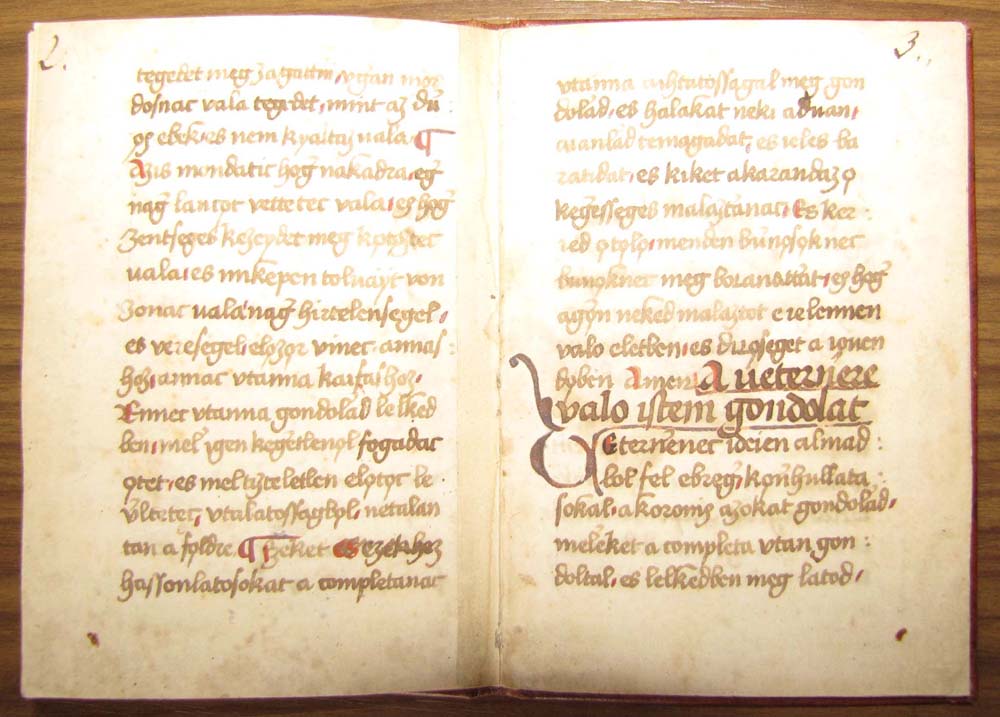 2.
tegedet meg zagattni, vgan mor
dosnac vala tegedet, mint az dů
ǫs ebek, es nem kyaltaz vala. ¶
Azis mondatic hog̃ nakadra, eg̃
nag̃ lançot vettetec vala, es hog̃
zentseges kezeydet meg kǫtǫztec
vala, es mikepen toluayt von
zonac vala, nag̃ hirtelensegel,
es veresegel, elozǫr vinec annas
hoz, annac vtanna kaifas hoz,
Ennec vtanna gondolad lelked
ben, mel' igen kegetlenǫl fogadac
ǫtet, es mel tizteletlen elǫtǫc le
v̊ltetec, vtalatossagbol, netalan
tan a fǫldre. ¶ Ezeket es ezekhez
hassonlatosokat a completanac
3.
vtanna aihtatossagal meg gon
dolad, es halakat neki aduan,
aianlad temagadat, es ieles ba
ratidat, es kiket akarandazǫ
kegesseges malaztanac, Es ker
ied ǫtǫlǫ, menden bůnǫsǫknec
bůnǫknec meg boranattat, es hog̃
ag̃on neked malaztot e ielennen
valo eletben, es dicǫseget a iǫuen
dǫben Amen, A veternẽre
valo istem gondolat
Veternẽnec ideien almad
bol fel ebreg̃, kǫnhullata
sokal, akoronis azokat gondolad,
meleket a completa vtan gon
doltal, es lelkedben meg latod,